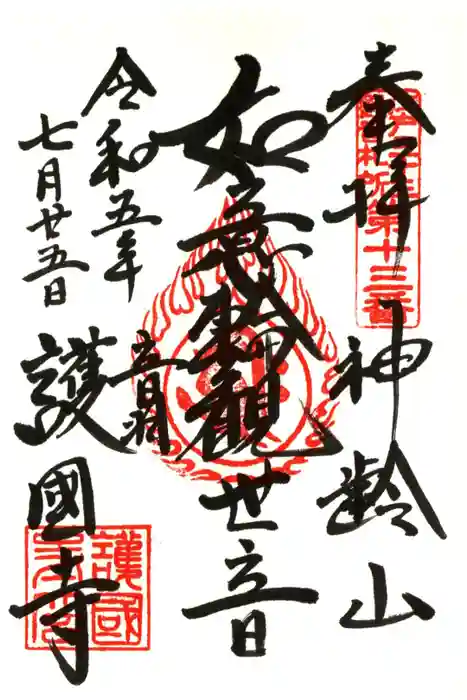 奉拝
神齢山
札所第十三番
如意輪觀世音
令和五年
七月廿五日
音羽
護國寺
護國